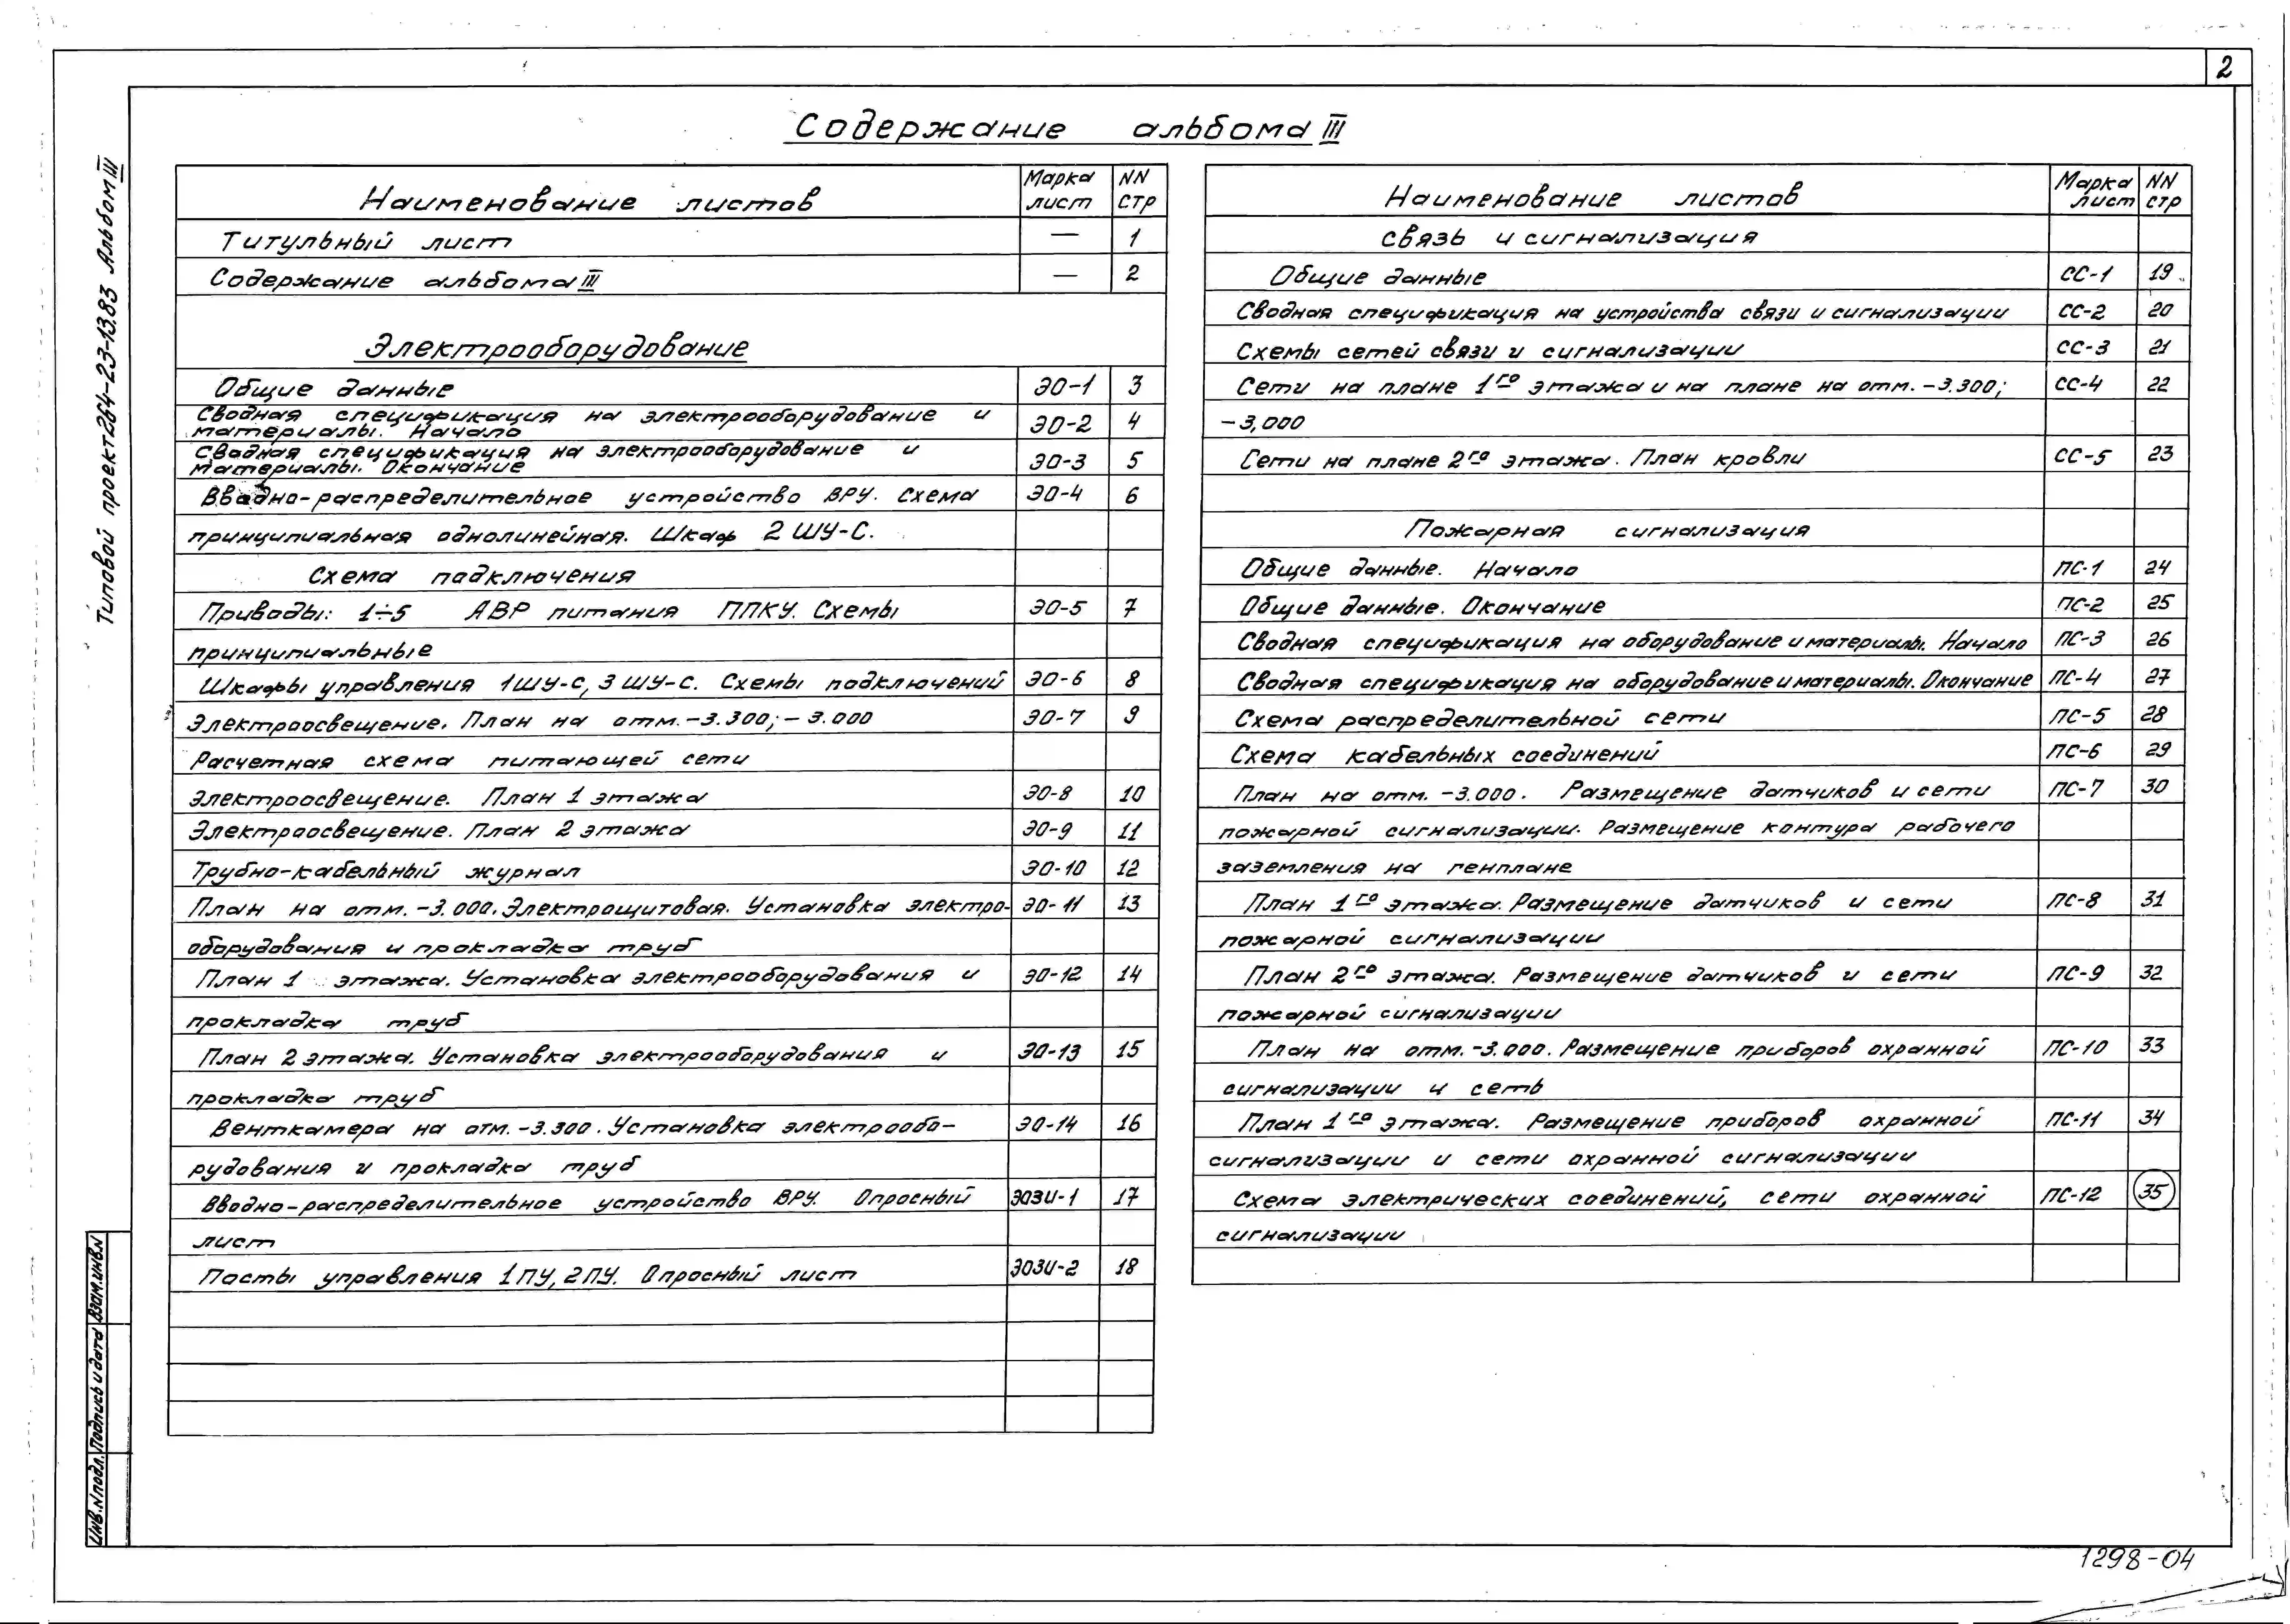 2
Содержание альбома III
Типовой проект 264-23-13.83 Альбом III
Наименование листов Марка лист NN стр
Титульный лист — 1
Содержание альбома III — 2
Электрооборудование
Общие данные ЭО-1 3
Сводная спецификация на электрооборудование и
материалы. Начало ЭО-2 4
Сводная спецификация на электрооборудование и
материалы. Окончание ЭО-3 5
Вводно-распределительное устройство ВРУ. Схема ЭО-4 6
принципиальная однолинейная. Шкаф 2 ШУ-С.
Схема подключения
Приводы: 1÷5 АВР питания ППКУ. Схемы ЭО-5 7
принципиальные
Шкафы управления 1ШУ-С, 3 ШУ-С. Схемы подключений ЭО-6 8
Электроосвещение. План на отм. -3.300; -3.000 ЭО-7 9
Расчетная схема питающей сети
Электроосвещение. План 1 этажа ЭО-8 10
Электроосвещение. План 2 этажа ЭО-9 11
Трубно-кабельный журнал ЭО-10 12
План на отм. -3.000. Электрощитовая. Установка электро- ЭО-11 13
оборудования и прокладка труб
План 1 этажа. Установка электрооборудования и ЭО-12 14
прокладка труб
План 2 этажа. Установка электрооборудования и ЭО-13 15
прокладка труб
Венткамера на отм. -3.300. Установка электрообо- ЭО-14 16
рудования и прокладка труб
Вводно-распределительное устройство ВРУ. Опросный ЭОЗИ-1 17
лист
Посты управления 1ПУ, 2ПУ. Опросный лист ЭОЗИ-2 18
Наименование листов Марка лист NN стр
Связь и сигнализация
Общие данные СС-1 19
Сводная спецификация на устройства связи и сигнализации СС-2 20
Схемы сетей связи и сигнализации СС-3 21
Сети на плане 1го этажа и на плане на отм. -3.300; СС-4 22
-3,000
Сети на плане 2го этажа. План кровли СС-5 23
Пожарная сигнализация
Общие данные. Начало ПС-1 24
Общие данные. Окончание ПС-2 25
Сводная спецификация на оборудование и материалы. Начало ПС-3 26
Сводная спецификация на оборудование и материалы. Окончание ПС-4 27
Схема распределительной сети ПС-5 28
Схема кабельных соединений ПС-6 29
План на отм. -3.000. Размещение датчиков и сети ПС-7 30
пожарной сигнализации. Размещение контура рабочего
заземления на генплане
План 1го этажа. Размещение датчиков и сети ПС-8 31
пожарной сигнализации
План 2го этажа. Размещение датчиков и сети ПС-9 32
пожарной сигнализации
План на отм. -3.000. Размещение приборов охранной ПС-10 33
сигнализации и сеть
План 1го этажа. Размещение приборов охранной ПС-11 34
сигнализации и сети охранной сигнализации
Схема электрических соединений, сети охранной ПС-12 35
сигнализации
Инв. N подл. Подпись и дата Взам. инв. N
1298-04